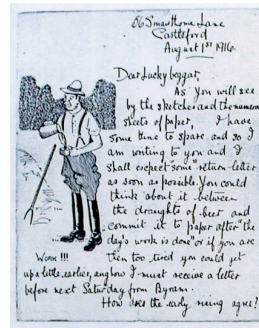 Smawthorne Lane
Castleford
August 1st 1916
Dear Lucky beggar,
As you will see
by the sketches and the numerous
sheets of paper, I have
some time to spare and so I
am writing to you and I
shall expect "some" return letter
as soon as possible. You could
think about it between
the draughts of beer and
commit it to paper after "the
day's work is done" or if you are
WORK !!! then too tired you could get
up a little earlier, anyhow I must receive a letter
before next Saturday from Byram.
How does the early rising agree?